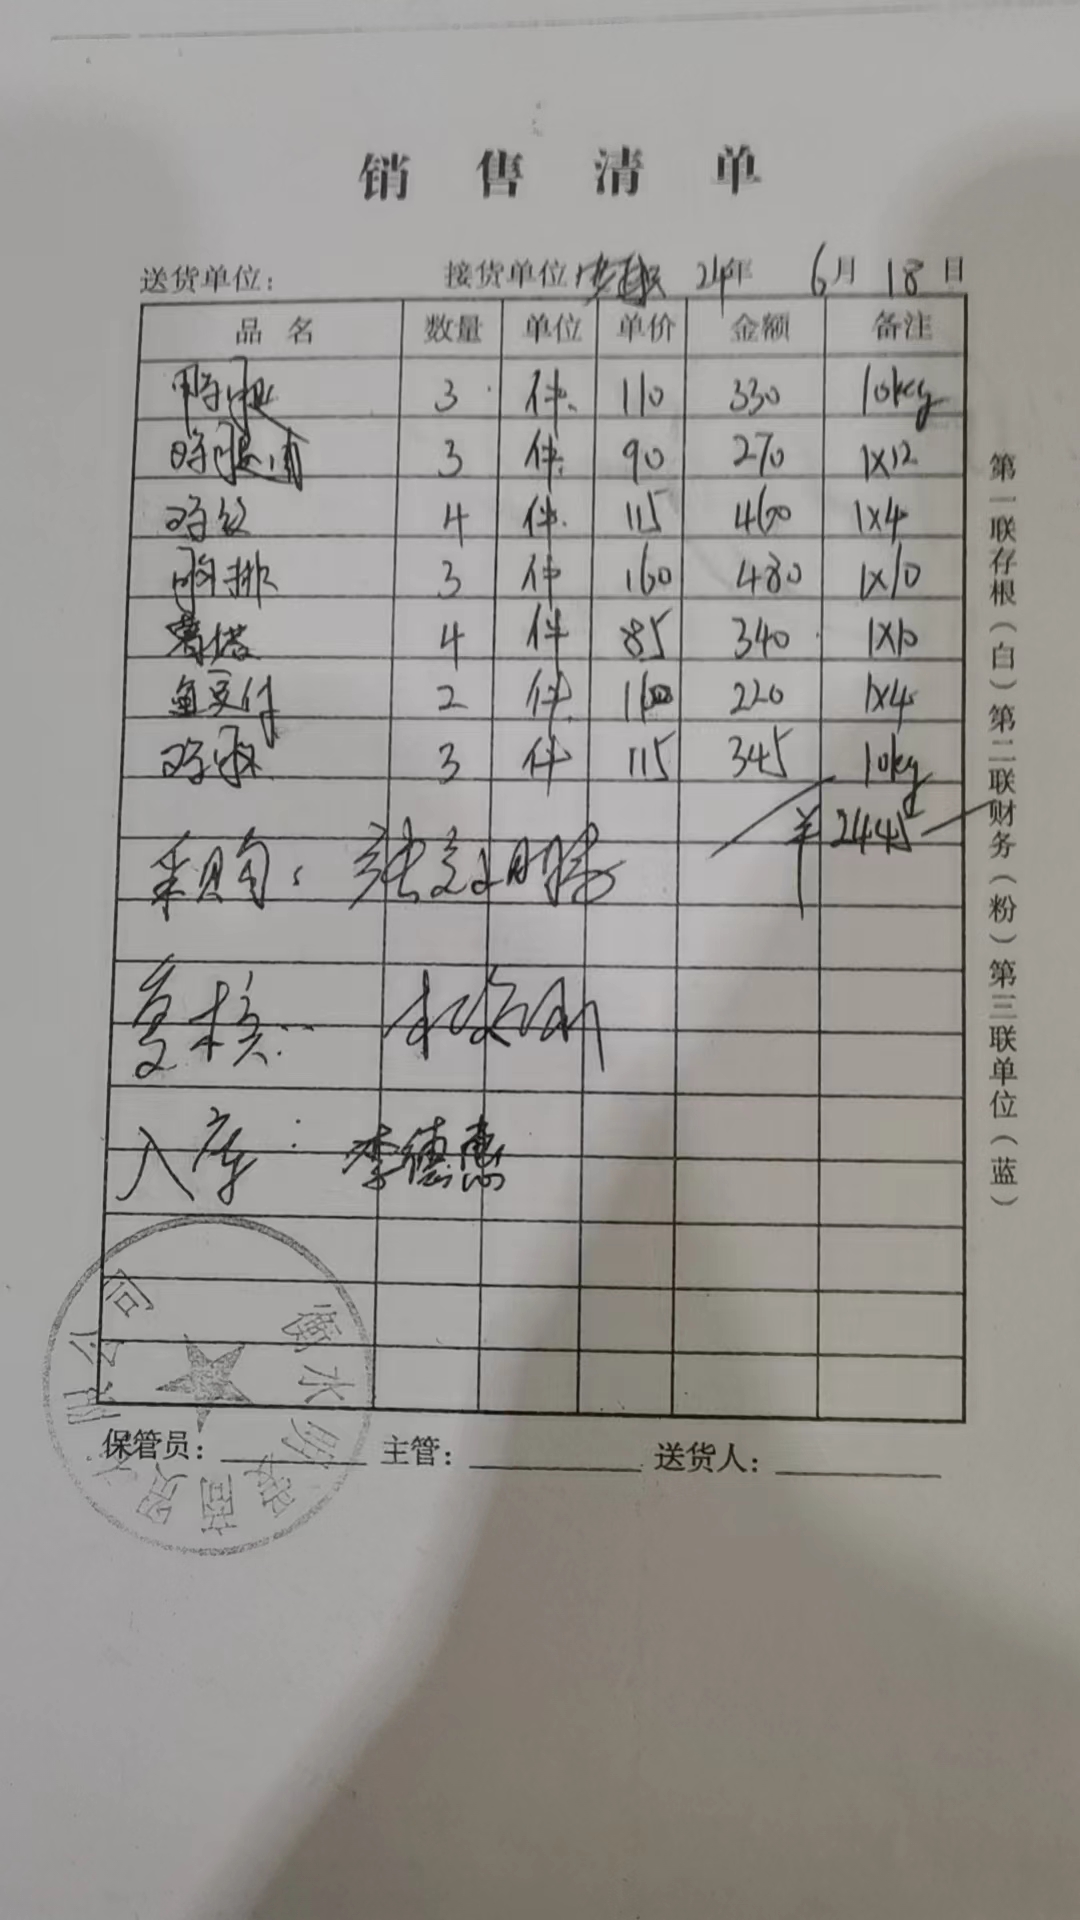 销售清单
送货单位： 接货单位 24年 6月 18日
品名 数量 单位 单价 金额 备注
鸭腿 3 件 110 330 10kg
3 件 90 270 1X12
鸡 4 件 115 460 1X4
排 3 件 160 480 1X10
薯塔 4 件 85 340 1X10
鱼豆付 2 件 110 220 1X4
鸡 3 件 115 345 10kg
¥2445
采购：张
复核：
入库：李德惠
保管员： 主管： 送货人：
第一联存根（白）第二联财务（粉）第三联单位（蓝）
衡水财 商贸有限公司